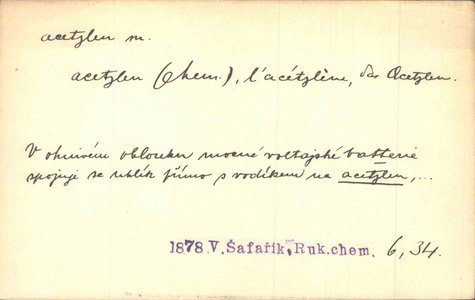 acetylen m.
acetylen (Chem.), l'acétylène, das Acetylen.
V ohnivém oblouku mocné voltajské batterie
spojuje se uhlík přímo s vodíkem na acetylen,...
1878 V. Šafařík, Ruk.chem. 6,34.